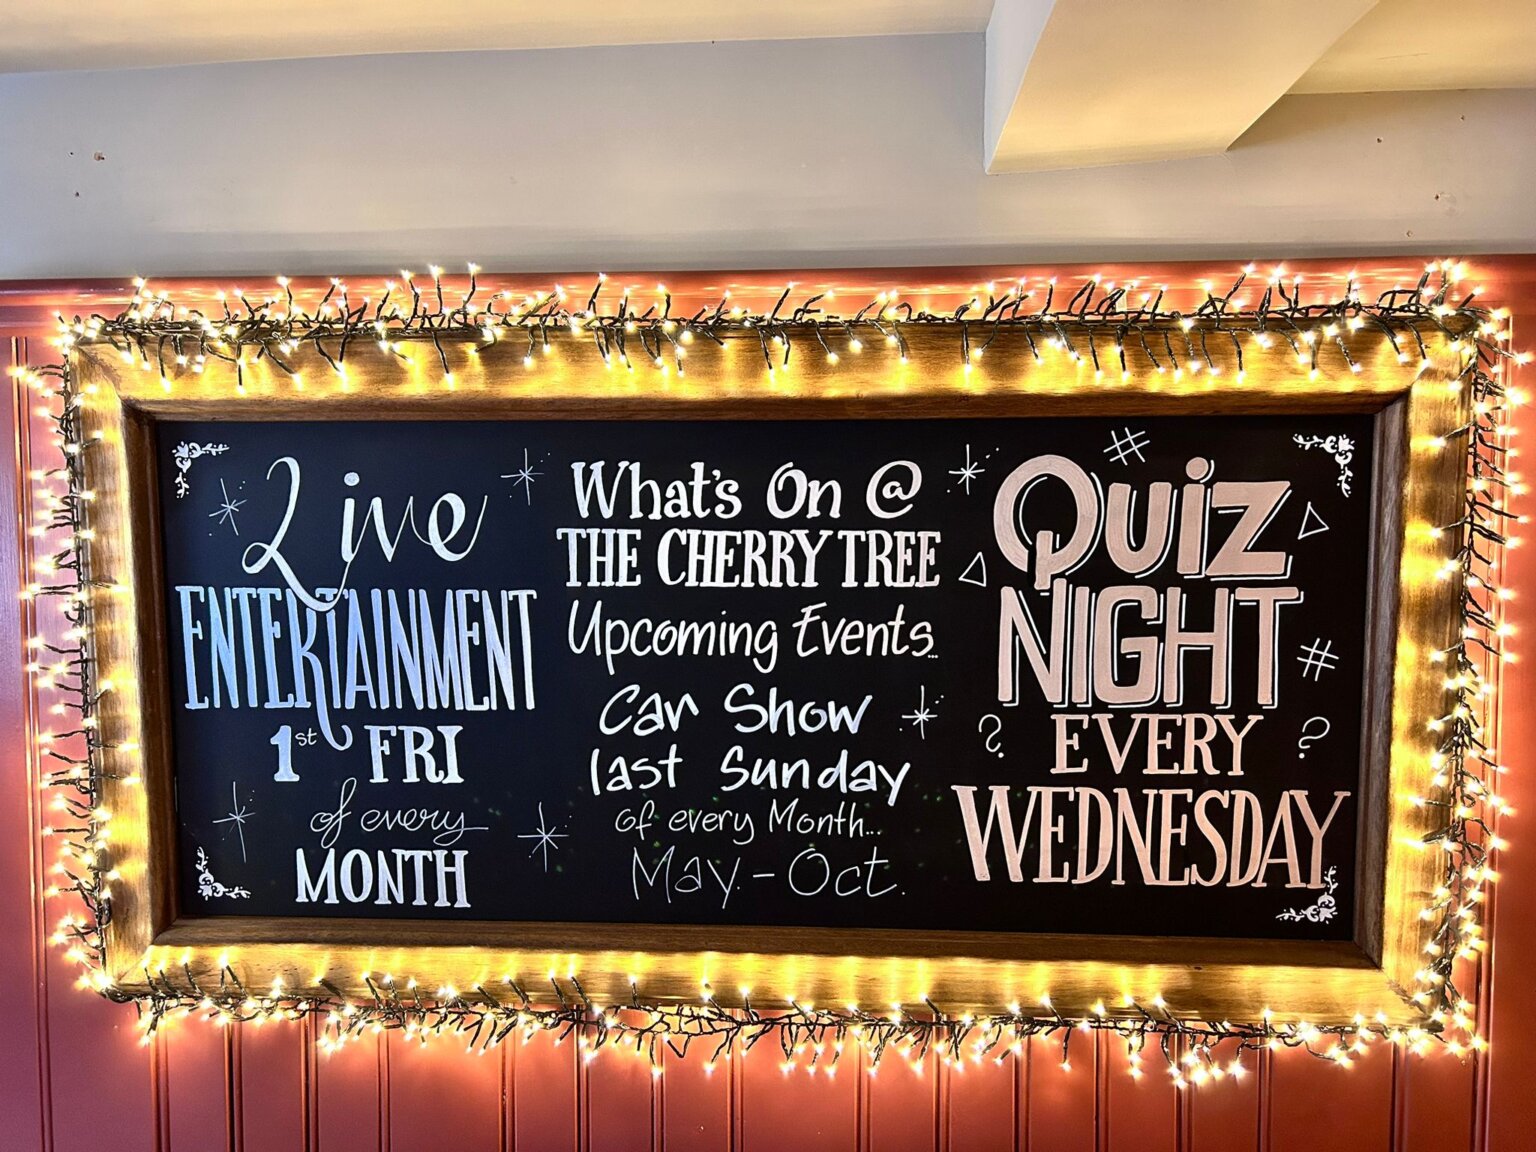 Live
ENTERTAINMENT
1st FRI
of every
MONTH
What's On @
THE CHERRY TREE
Upcoming Events...
Car Show
last Sunday
of every Month...
May - Oct.
QUIZ
NIGHT
EVERY
WEDNESDAY